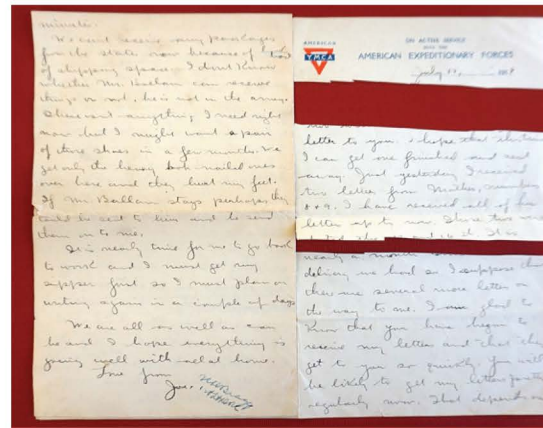 minute.
We can't receive any packages
for the state now because of
of shipping space. I don't know
whether Mr. Ballam can receive
things or not, he is not in the army.
There isn't anything I need right
now but I might want a pair
of shoes in a few months. We
get only the heavy nailed ones
over here and they hurt my feet.
If Mr. Ballam stays perhaps they
could be sent to him and he send
them on to me.
It is nearly time for me to go back
to work and I must get my
supper first so I must plan on
writing again in a couple of days.
We are all as well as can
be and I hope everything is
going well with all at home.
Love from
Joe.
AMERICAN
YMCA
ON ACTIVE SERVICE
WITH THE
AMERICAN EXPEDITIONARY FORCES
July 191
letter to you. I hope that
I can get one finished and sent
away. Just yesterday I received
two letter from Mother, numbers
8 + 9. I have received all of her
letter up to now. These two were
nearly a month
delivery we had so I suppose that
there are several more letter on
the way to me. I am glad to
know that you have begun to
receive my letter and that they
get to you so quickly. You will
be likely to get my letter
regularly now. That depends on